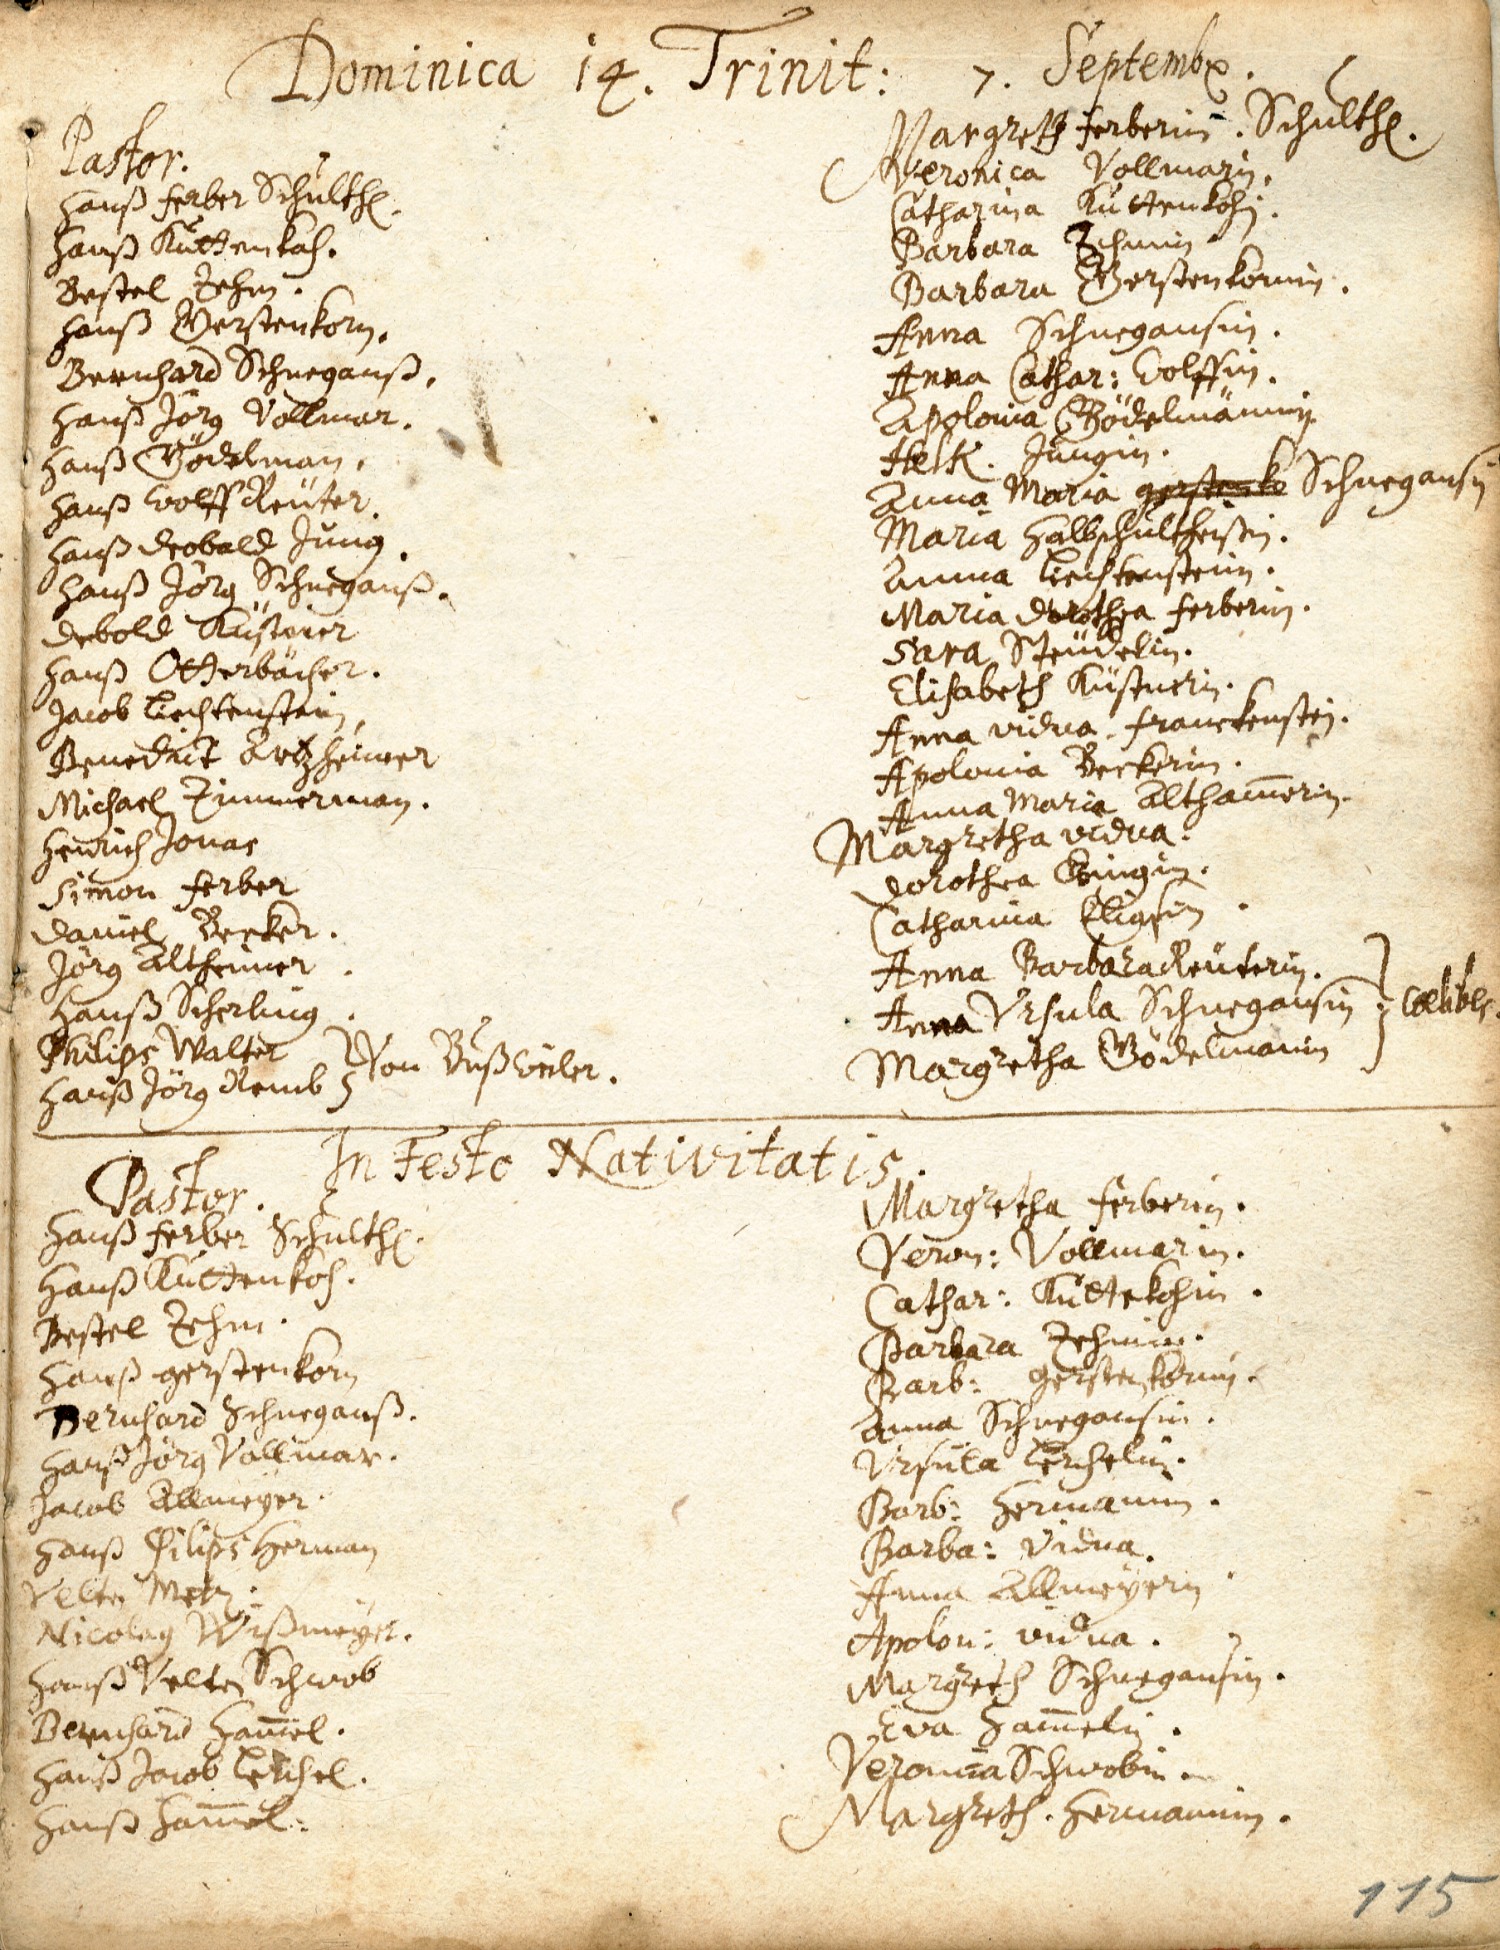 Dominica 14. Trinit: 7. Septembr.
Pastor.
Hanß Ferber Schulth.
Hanß Kuttenkoh.
Bestel Zehm.
Hanß Gerstenkorn.
Bernhard Schneganß.
Hanß Jörg Vollmar.
Hanß Bödelman.
Hanß Wolff Reüter.
Hanß Deobald Jung.
Hanß Jörg Schneganß.
Debold Küstner
Hanß Otterbächer.
Jacob Liechtenstein.
Benedict Artzheimer
Michael Zimmerman.
Henrich Jonas
Simon Ferber
Daniel Becker.
Jörg Altheimer.
Hanß Scherling.
Philips Walter
Hanß Jörg Remb } Von Bußweiler.
Margreth Ferberin. Schulth.
Veronica Vollmarin.
Catharina Kuttenkohin.
Barbara Zehmin
Barbara Gerstenkornin.
Anna Schnegansin.
Anna Cathar: Wolffin.
Apolonia Bödelmännin.
Jungin.
Anna Maria Schnegansin
Maria Halbschultheisin.
Anna Liechtensteinin.
Maria Dorothea Ferberin.
Sara Steüdelin.
Elisabeth Küstnerin.
Anna vidua. Franckenstein.
Apolonia Beckerin.
Anna Maria Altham̄erin.
Margretha vidua.
Dorothea
Catharina
Anna Barbara Reüterin.
Anna Ursula Schnegansin
Margretha Bödelmanin } Cœlibes.
In Festo Nativitatis.
Pastor.
Hanß Ferber Schulth.
Hanß Kuttenkoh.
Bestel Zehm.
Hanß Gerstenkorn
Bernhard Schneganß.
Hanß Jörg Vollmar.
Jacob Allmeyer.
Hanß Philips Herman
Velten Metz.
Nicolaus Wißmeyer.
Hanß Velten Schwob
Bernhard Ham̄el.
Hanß Jacob Lerchel.
Hanß Ham̄el.
Margretha Ferberin.
Veron: Vollmarin.
Cathar: Kuttekohin.
Barbara Zehmin.
Barb: Gerstenkornin.
Anna Schnegansin.
Ursula Lerchelin.
Barb: Hermanin.
Barba: Vidua.
Anna Allmeyerin
Apolon: vidua.
Margreth Schnegansin.
Eva Ham̄elin.
Veronica Schwobin.
Margreth. Hermannin.
115